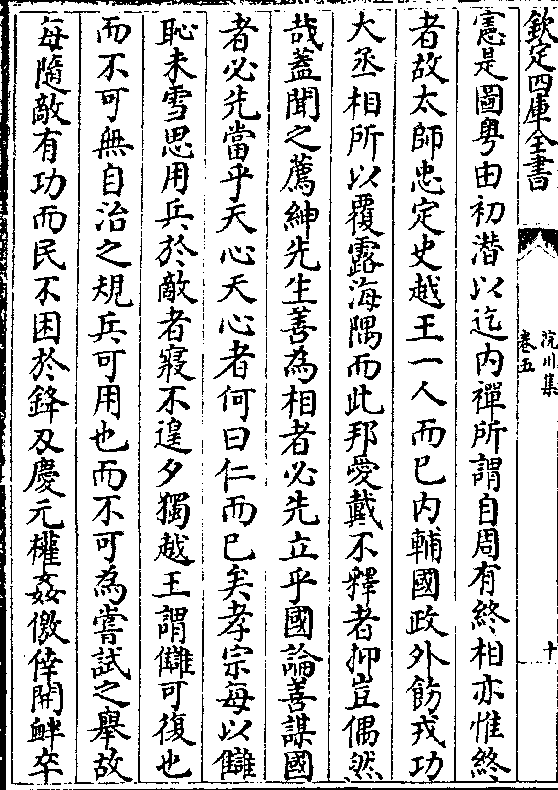 欽定四庫全書
浣川集
卷五
十
憲是圖粤由初潛以迄内禪所謂自周有終相亦惟終
者故太師忠定史越王一人而已内輔國政外飭戎功
大丞相所以覆露海隅而此邦愛戴不釋者抑豈偶然
哉蓋聞之薦紳先生善為相者必先立乎國論善謀國
者必先當乎天心天心者何曰仁而已矣孝宗每以讎
恥未雪思用兵於敵者寢不遑夕獨越王謂讎可復也
而不可無自治之規兵可用也而不可為嘗試之舉故
每隨敵有功而民不困於鋒刄慶元權姦儌倖開衅卒